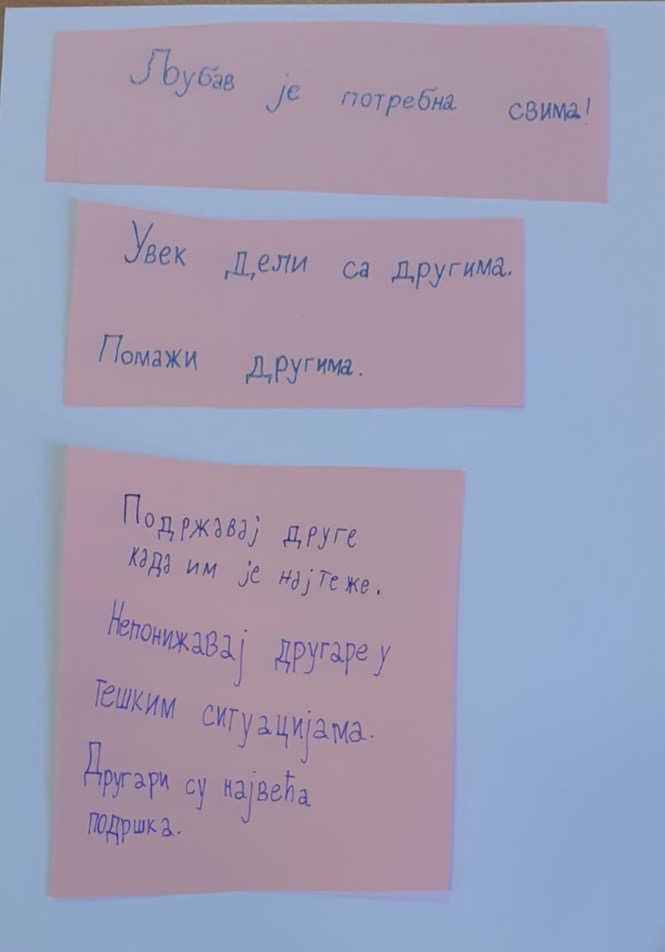 Љубав је потребна свима!
Увек дели са другима.
Помажи другима.
Подржавај друге
када им је најтеже.
Непонижавај другаре у
тешким ситуацијама.
Другари су највећа
подршка.